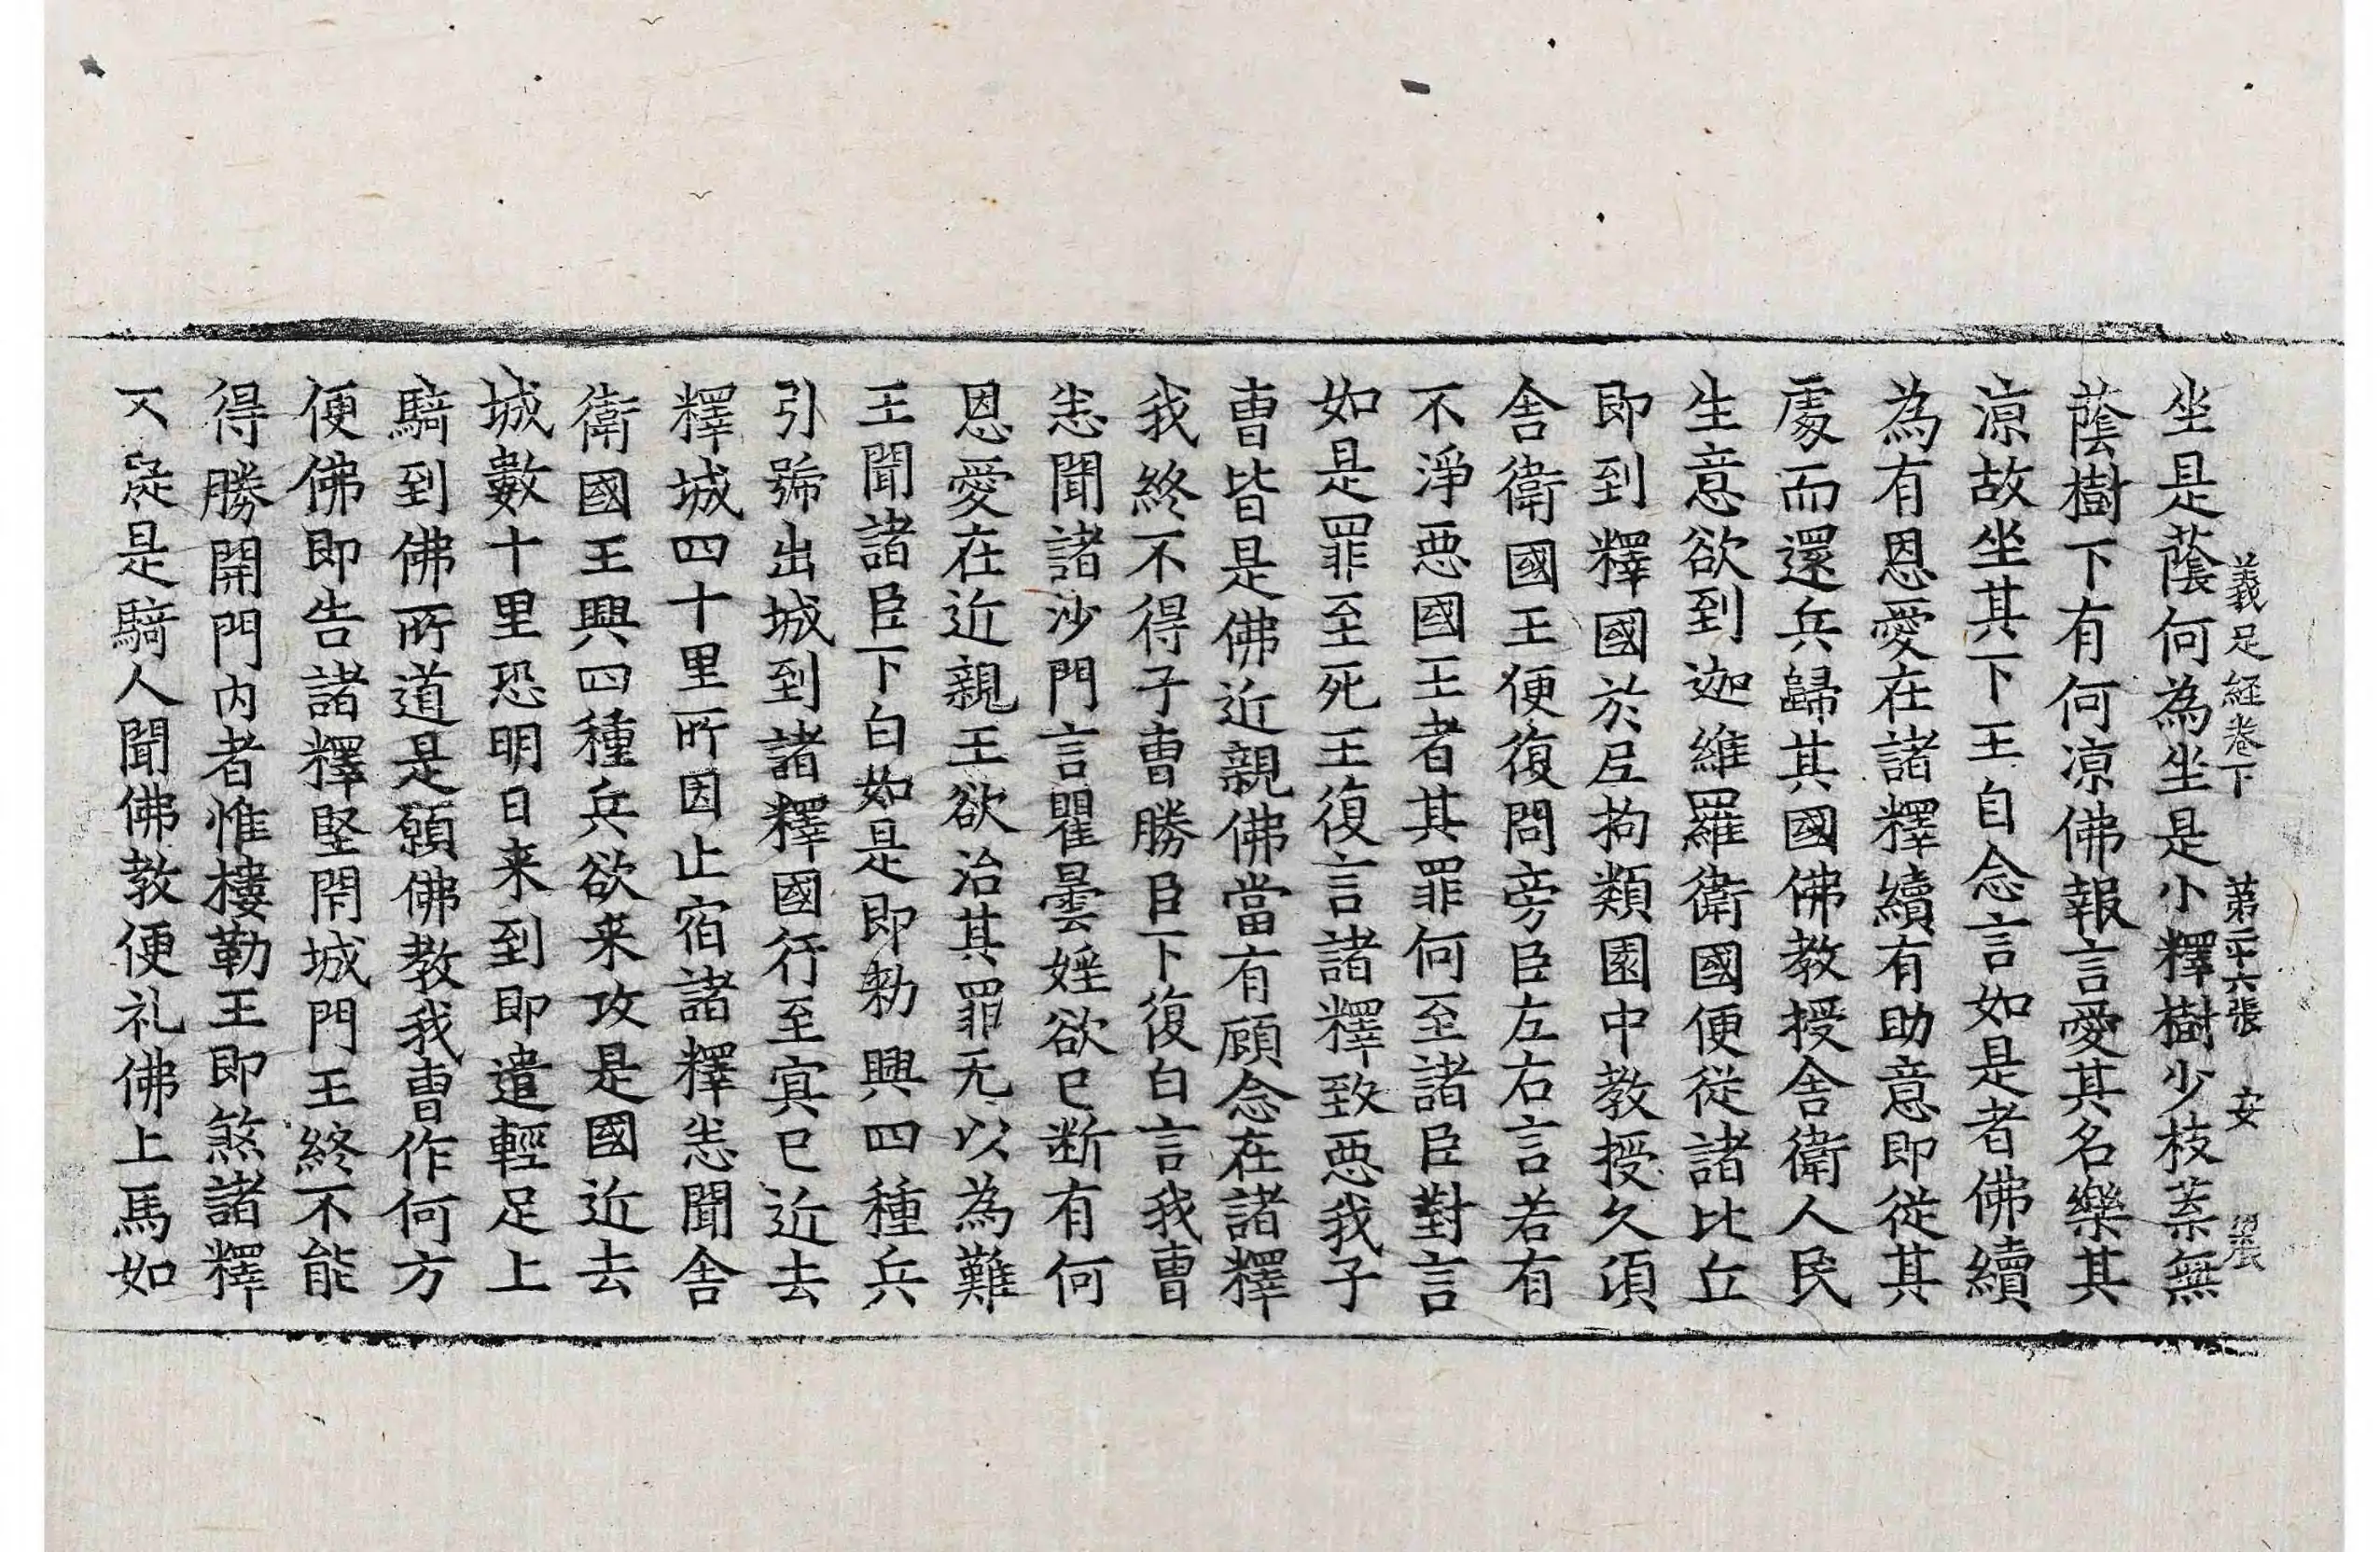 義足經卷下　第二十六張　安
坐是蔭何為坐是小釋樹少枝葉無
蔭樹下有何涼佛報言愛其名樂其
涼故坐其下王自念言如是者佛續
為有恩愛在諸釋續有助意即從其
處而還兵歸其國佛教授舍衛人民
生意欲到迦維羅衛國便從諸比丘
即到釋國於㞐拘類園中教授久須
舍衛國王便復問旁臣左右言若有
不淨惡國王者其罪何至諸臣對言
如是罪至死王復言諸釋致惡我子
曹皆是佛近親佛當有顧念在諸釋
我終不得子曹勝臣下復白言我曹
悉聞諸沙門言瞿曇婬欲已斷有何
恩愛在近親王欲治其罪无以為難
王聞諸臣下白如是即勑興四種兵
引號出城到諸釋國行至㝠已近去
釋城四十里所因止宿諸釋悉聞舍
衛國王興四種兵欲来攻是國近去
城數十里恐明日来到即遣輕足上
騎到佛所道是願佛教我曹作何方
便佛即告諸釋堅閇城門王終不能
得勝開門內者惟樓勒王即煞諸釋
又從是騎人聞佛教便礼佛上馬如